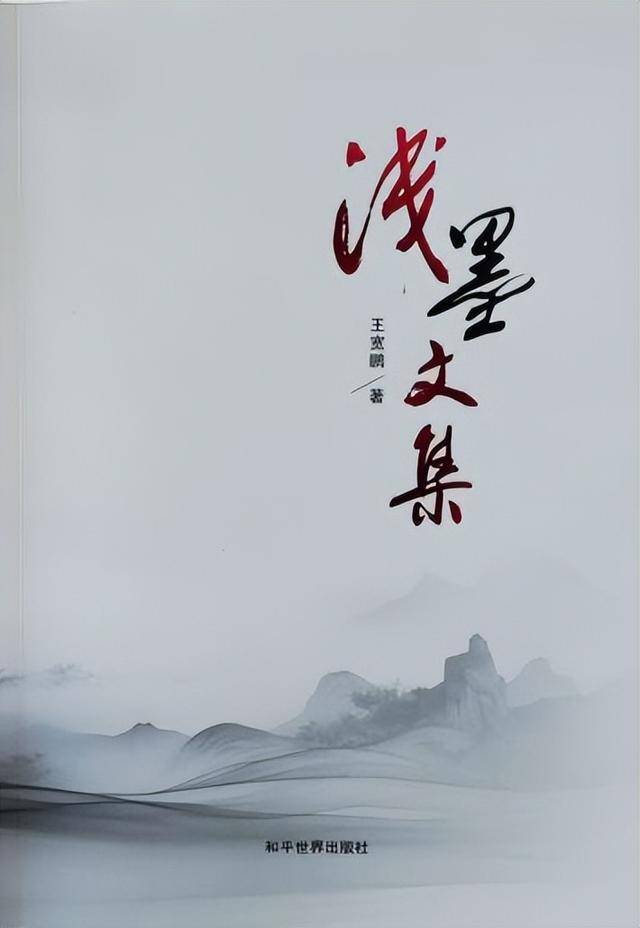 浅墨文集
王宽鹏／著
和平世界出版社